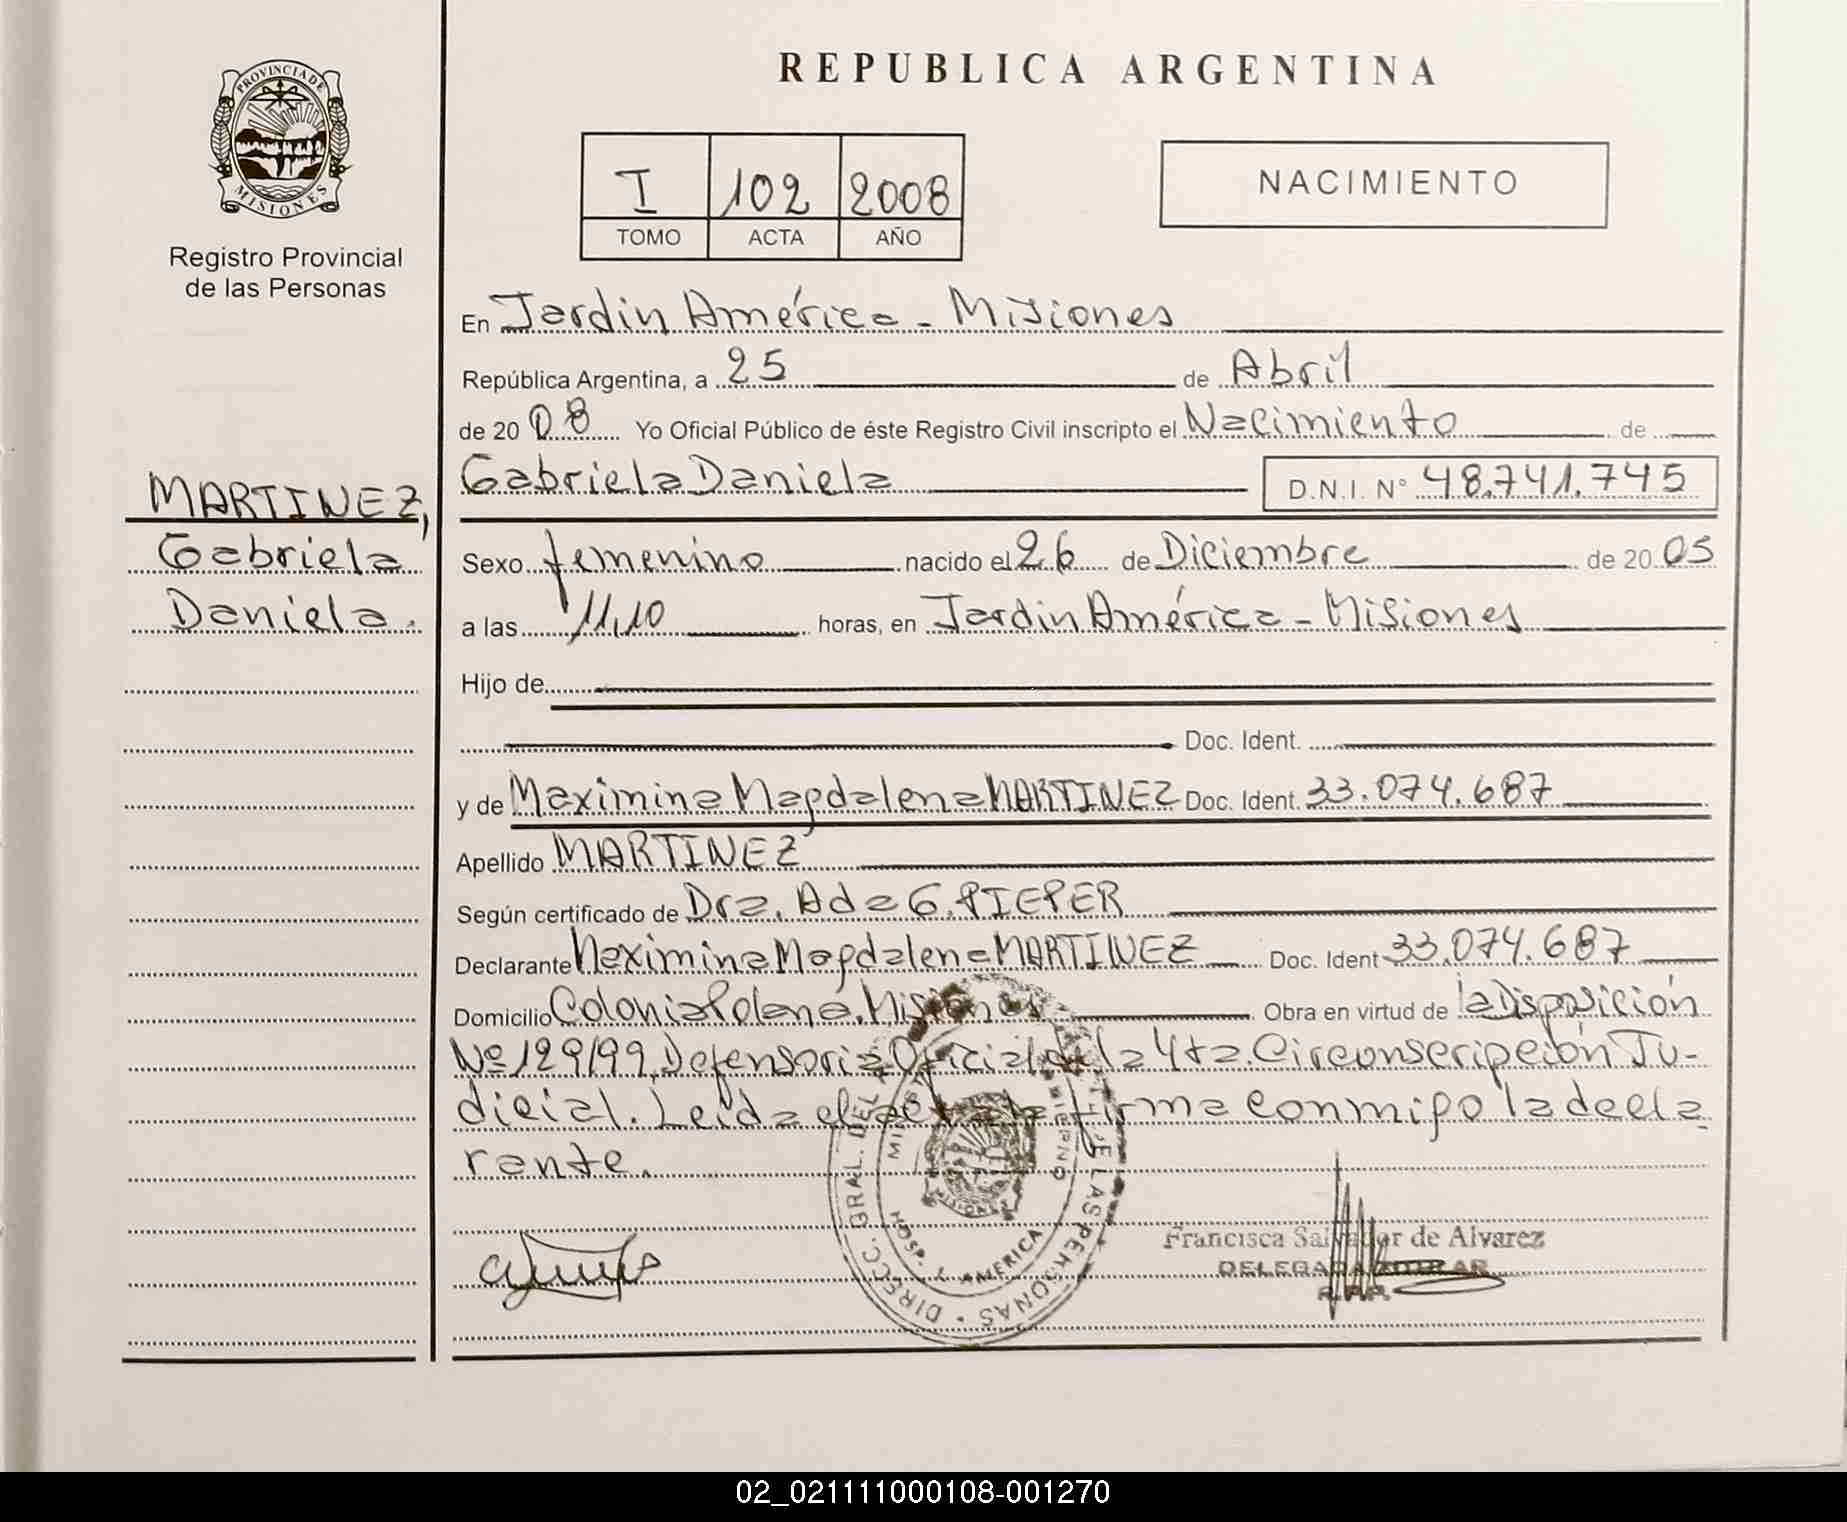 REPUBLICA ARGENTINA
PROVINCIA DE
MISIONES
Registro Provincial
de las Personas
I 102 2008
TOMO ACTA AÑO
NACIMIENTO
En Jardin América - Misiones
República Argentina, a 25 de Abril
de 20 08 Yo Oficial Público de éste Registro Civil inscripto el Nacimiento de
Gabriela Daniela D.N.I. N° 48.741.745
MARTINEZ,
Gabriela
Daniela.
Sexo femenino nacido el 26 de Diciembre de 20 05
a las 11,10 horas, en Jardin América - Misiones
Hijo de
Doc. Ident.
y de Maximina Magdalena MARTINEZ Doc. Ident. 33.074.687
Apellido MARTINEZ
Según certificado de Dra. Ada G. PIEPER
Declarante Maximina Magdalena MARTINEZ Doc. Ident 33.074.687
Domicilio Colonia Polana. Misiones Obra en virtud de la Disposición
Nº 129/99, Defensoria Oficial de la 4ta. Circonscripción Ju-
dicial. Leida el acta la firma conmigo la decla
rante.
DIRECC. GRAL. DEL LAS PERSONAS
HOSP. J. AMERICA
Francisca Salvador de Alvarez
DELEGADA TITULAR
R.P.P.
02_021111000108-001270